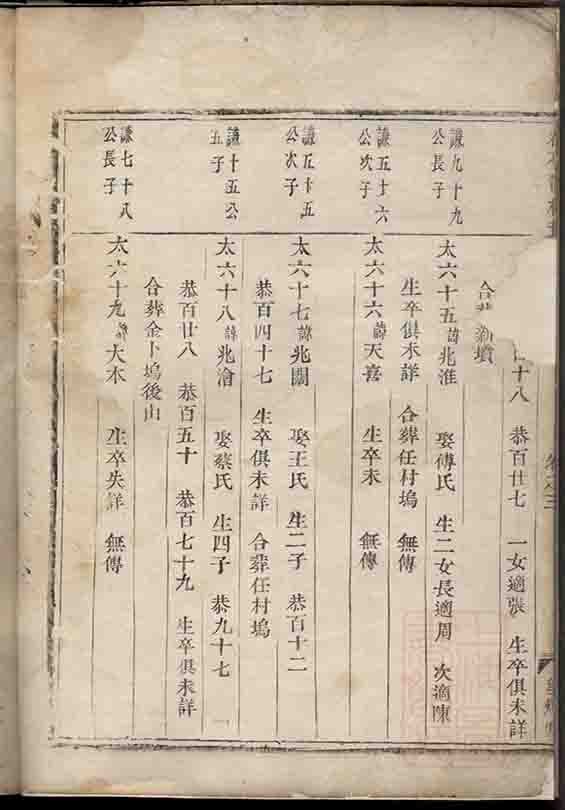 十八　恭百廿七　一女適張　生卒俱未詳
合葬　墳
謙九十九
公長子
太六十五諱兆淮　娶傅氏　生二女長適周　次適陳
生卒俱未詳　合葬任村塢　無傳
謙五十六
公次子
太六十六諱天喜　生卒未　無傳
謙五十五
公次子
太六十七諱兆關　娶王氏　生二子　恭百十二
恭百四十七　生卒俱未詳　合葬任村塢
謙十五公
五子
太六十八諱兆澮　娶蔡氏　生四子　恭九十七
恭百廿八　恭百五十　恭百七十九　生卒俱未詳
合葬金卜塢後山
謙七十八
公長子
太六十九諱大本　生卒失詳　無傳